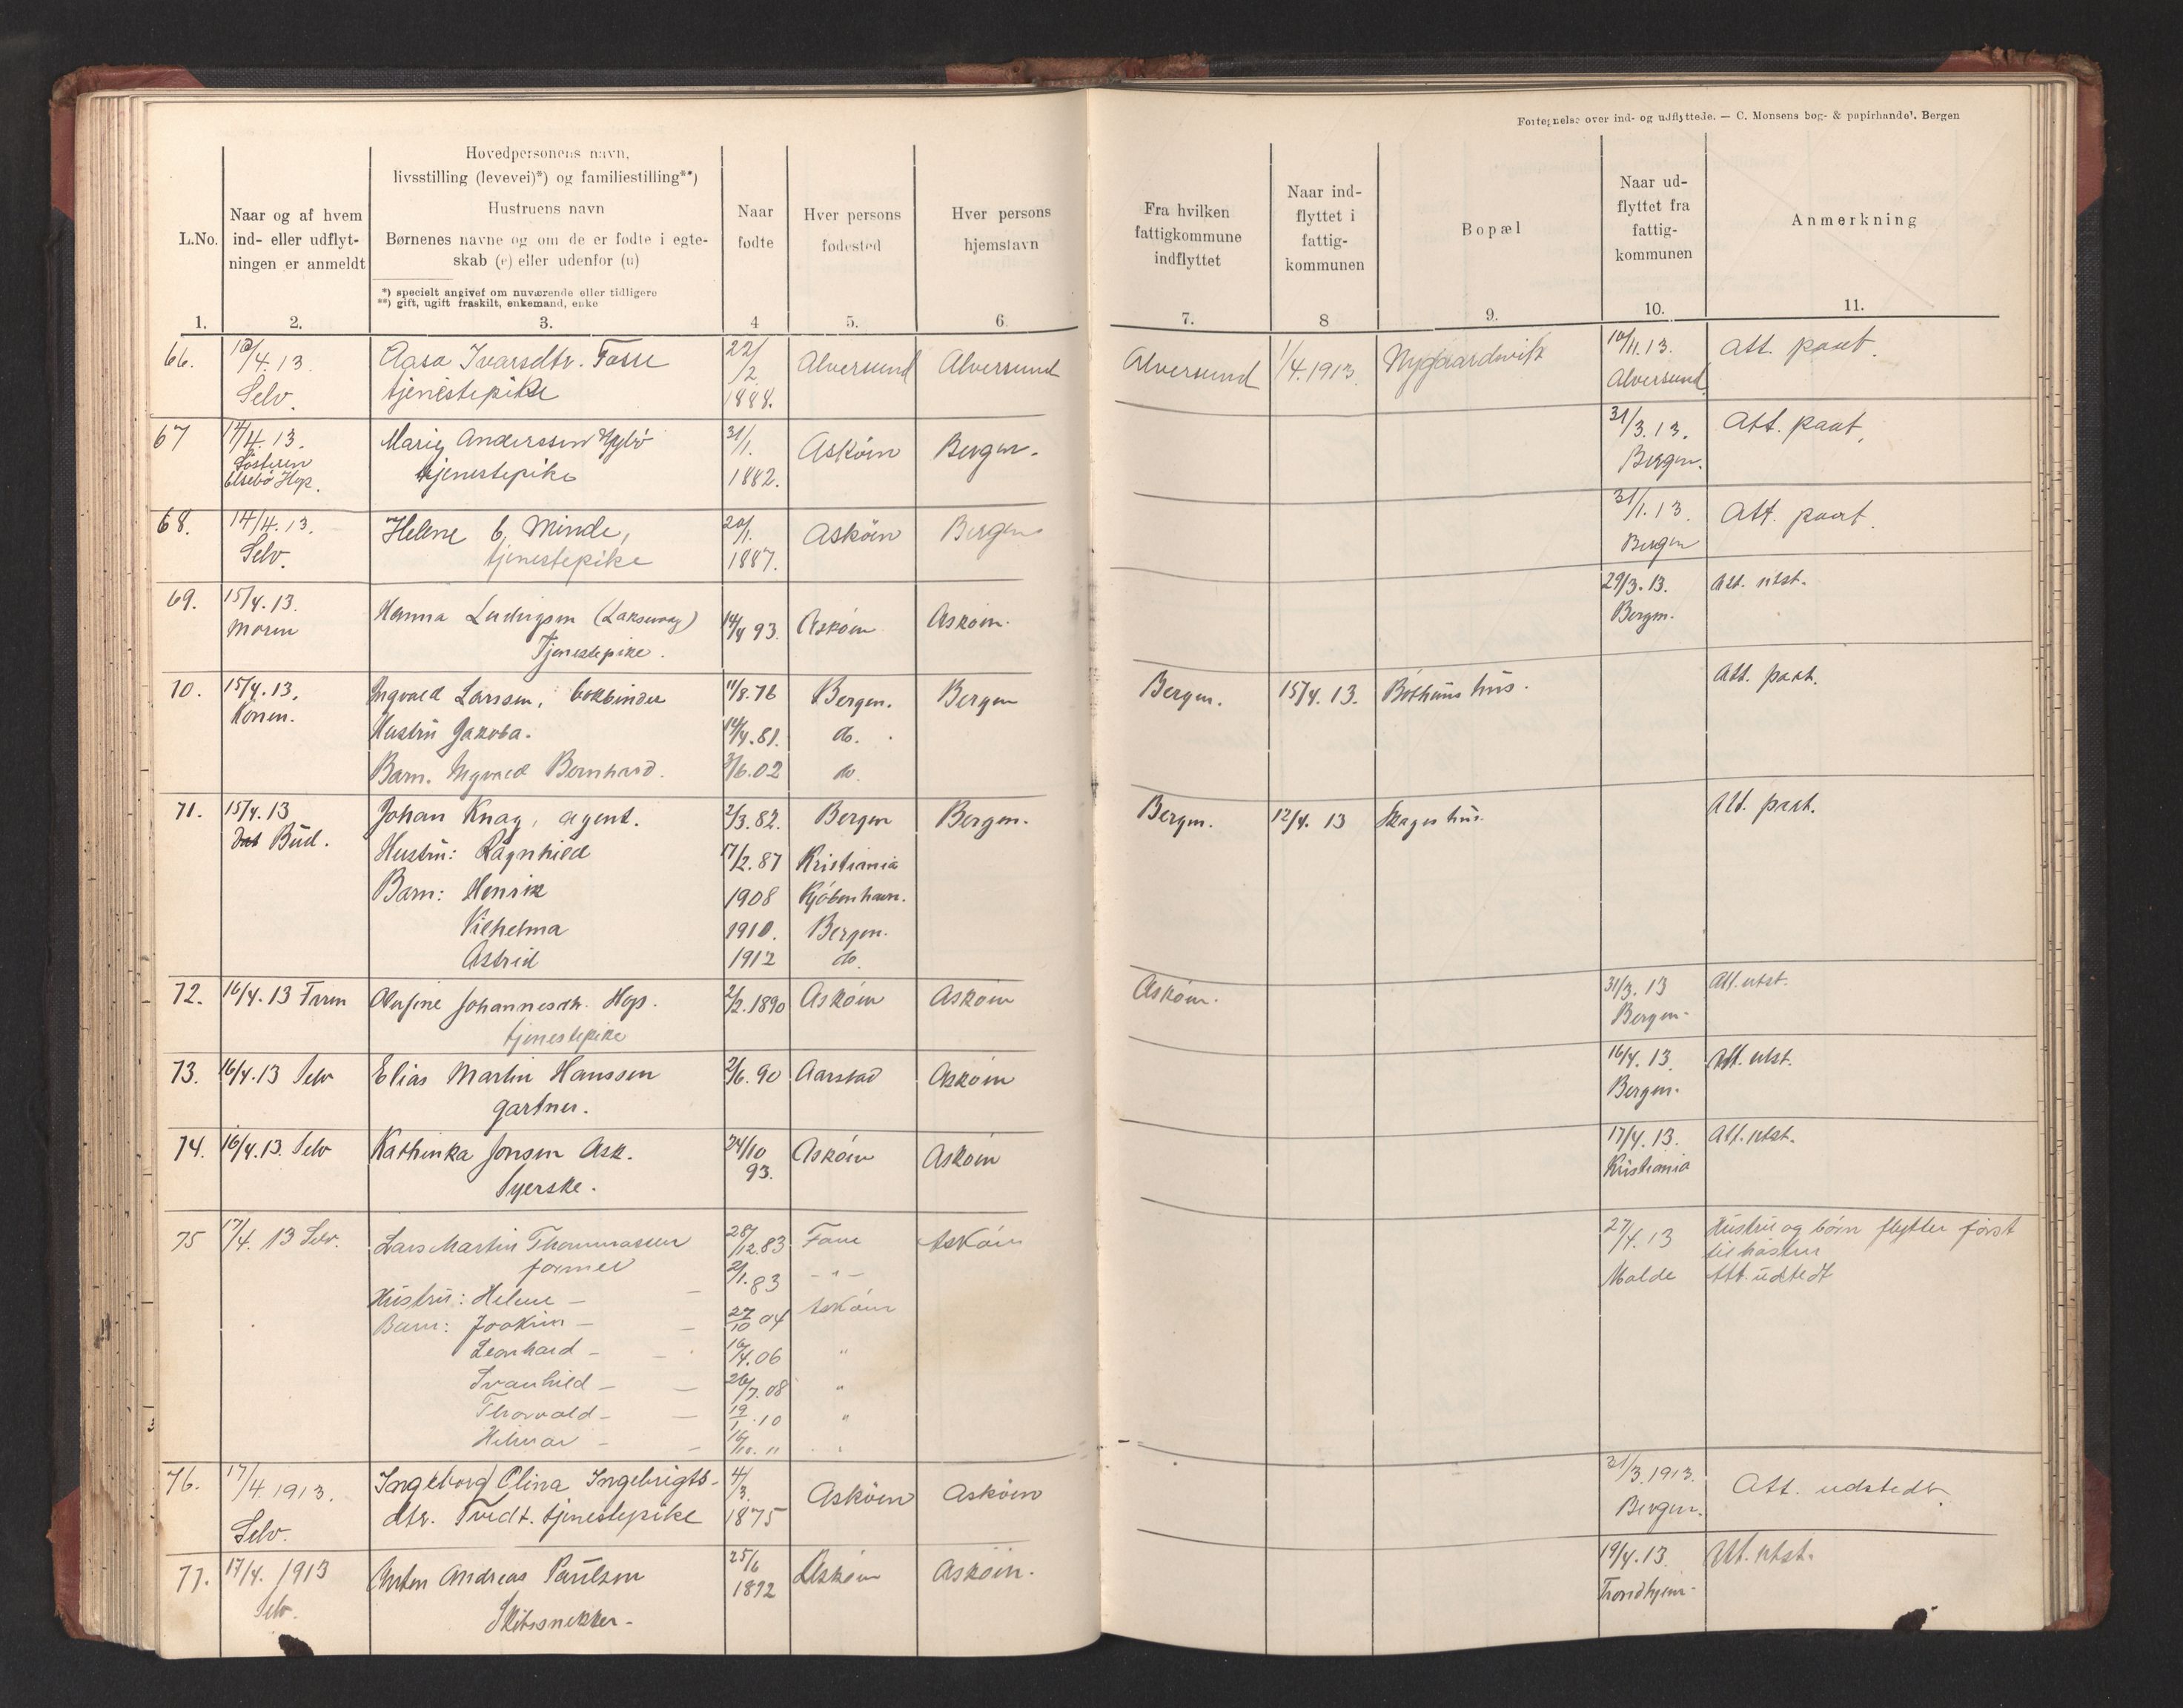 Fortegnelse over ind- og udflyttede. — C. Monsens bog- & papirhandel, Bergen
L.No.
Naar og af hvem
ind- eller udflyt-
ningen er anmeldt
Hovedpersonens navn,
livsstilling (levevei)*) og familiestilling**)
Hustruens navn
Børnenes navne og om de er fødte i egte-
skab (e) eller udenfor (u)
*) specielt angivet om nuværende eller tidligere
**) gift, ugift fraskilt, enkemand, enke
Naar
fødte
Hver persons
fødested
Hver persons
hjemstavn
Fra hvilken
fattigkommune
indflyttet
Naar ind-
flyttet i
fattig-
kommunen
Bopæl
Naar ud-
flyttet fra
fattig-
kommunen
Anmerkning
1. 2. 3. 4 5. 6. 7. 8 9. 10. 11.
66. 10/4. 13. Aasa Ivarsdtr. Fosse 22/2 Alversund Alversund Alversund 1/4. 1913. 10/11. 13. Att. paat.
Selv. tjenestepike 1888. Alversund
67 14/4. 13. Marie Anderssen 31/1. Askøen Bergen. 31/3. 13. Att. paat.
Søsteren tjenestepike 1882. Bergen.
Elsebø Hop.
68. 14/4. 13. Helene Minde, 20/1. Askøen Bergen 31/1. 13. Att. paat.
Selv. tjenestepike 1887. Bergen
69. 15/4. 13. Hanna Ludvigsen (Laksevaag) 14/4 93. Askøen Askøen. 29/3. 13. Att. utst.
Moren Tjenestepike. Bergen.
70. 15/4. 13. Ingvald Larssen, bokbinder 11/8. 76 Bergen. Bergen Bergen. 15/4. 13. hus. Att. paat.
Konen. Hustru Jakoba. 14/4. 81. do.
Barn. Ingvald Bernhard. 3/6. 02 do.
71. 15/4. 13 Johan Knag, agent. 2/3. 82. Bergen Bergen. Bergen. 12/4. 13 Skages hus. Att. paat.
Bud. Hustru: Ragnhild 17/2. 87 Kristiania
Barn: Henrik 1908 Kjøbenhavn.
Vilhelma 1910. Bergen.
Astrid 1912 do.
72. 16/4. 13 Faren Olufine Johannesdtr. Hop. 2/2. 1890 Askøen Askøen Askøen. 31/3. 13 Att. utst.
tjenestepike Bergen.
73. 16/4. 13 Selv Elias Martin Hanssen 2/6. 90 Aarstad Askøen 16/4. 13. Att. utst.
gartner. Bergen.
74. 16/4. 13 Selv Kathinka Jonsen Ask. 24/10 Askøen Askøen 17/4. 13. Att. utst.
Syerske. 93. Kristiania
75 17/4. 13 Selv. Lars Martin Thommassen 28/12. 83 Fane Askøen 27/4. 13 Hustru og børn flytter først
former 2/1. 83 -"- til høsten
Hustru: Helene — Molde Att. udstedt
Barn: Joakim — 27/10 04 Askøen
Leonhard — 16/4. 06 "
Svanhild — 26/7. 08 "
Thorvald — 19/1. 10 "
Hilmar — 16/10. 11 "
76. 17/4. 1913. Ingeborg Olina Ingebrigts- 4/3. Askøen Askøen 31/3. 1913. Att. udstedt.
Selv. dtr. Tvedt. tjenestepike 1875 Bergen.
77. 17/4. 1913 Anton Andreas Paulsen 25/6 Askøen Askøen. 19/4. 13. Att. utst.
Selv. Skibssnekker. 1892 Trondhjem.